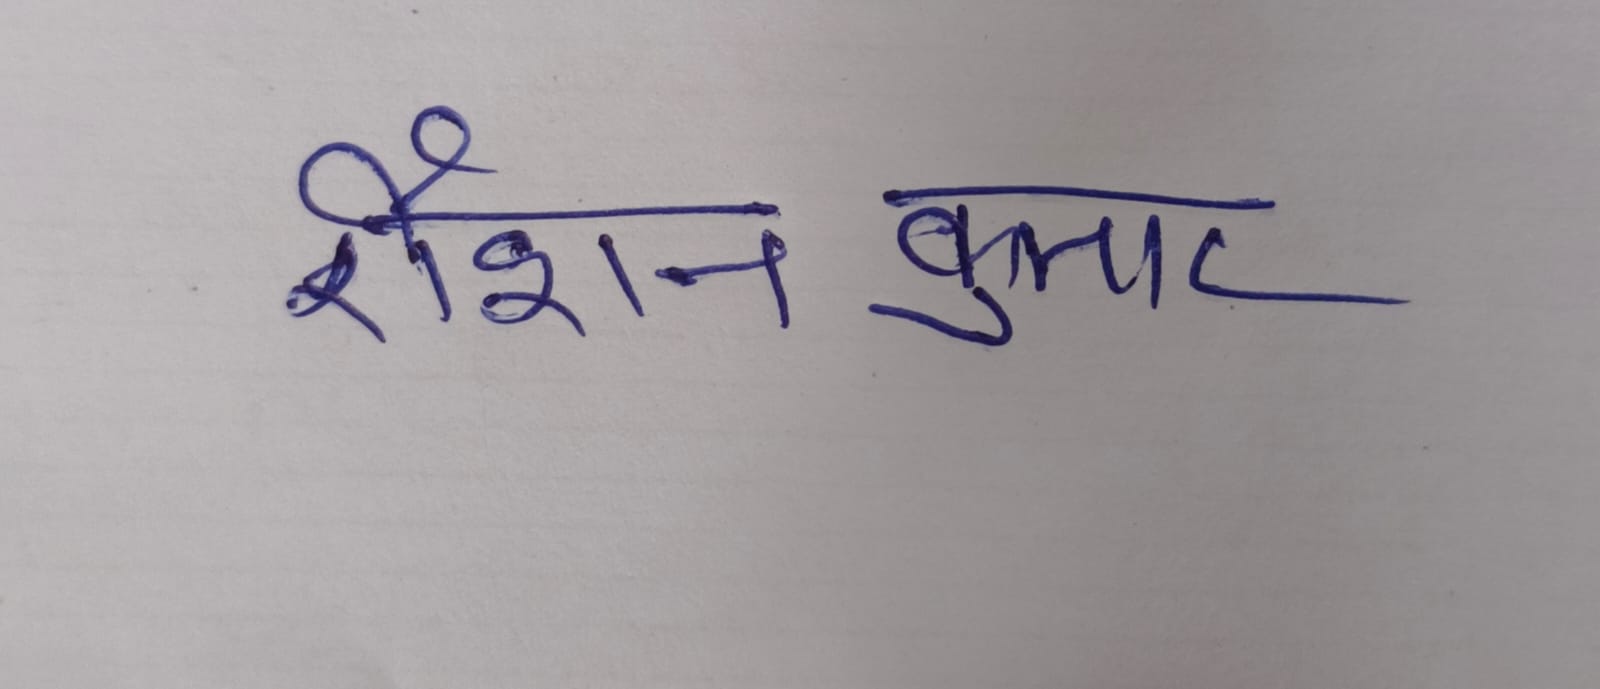 रौशन कुमार